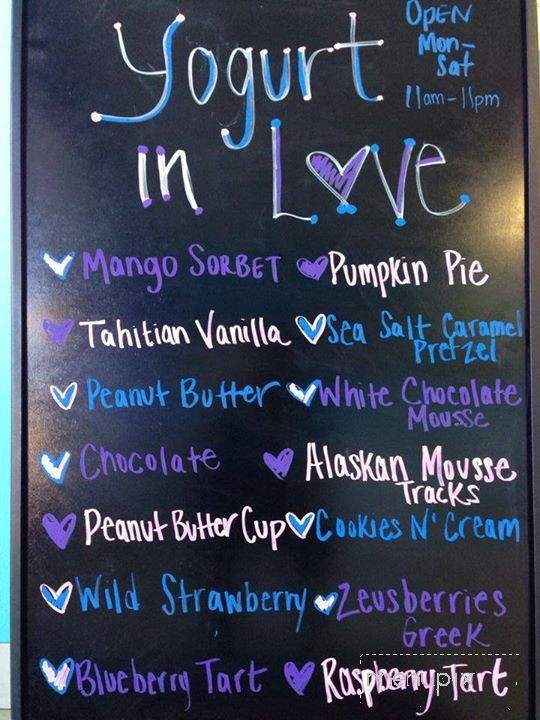 Yogurt
in Love
OPEN
Mon-
Sat
11am-11pm
Mango SORBET
Pumpkin Pie
Tahitian Vanilla
Sea Salt Caramel
Pretzel
Peanut Butter
White Chocolate
Mousse
Chocolate
Alaskan Mousse
Tracks
Peanut Butter Cup
Cookies N' Cream
Wild Strawberry
Zeusberries
Greek
Blueberry Tart
Raspberry Tart